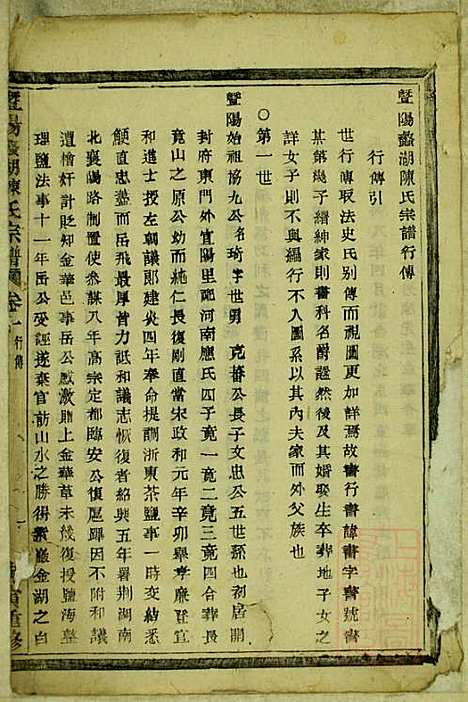 暨陽蠡湖陳氏宗譜行傳
行傳引
世行傳取法史氏別傳而視圖更加詳焉故書行書諱書字書號書
某第幾子縉紳家則書科名爵諡然後及其婚娶生卒葬地子女之
詳女子則不與編行不入圖系以其內夫家而外父族也
○第一世
暨陽始祖協九公名琦字世男 克 公長子文忠公五世孫也初居開
封府東門外宜陽里配河南應氏四子竟一竟二竟三竟四合葬長
竟山之原公幼而純仁長復剛直當宋政和元年辛卯舉孝廉登宣
和進士授左朝議郎建炎四年奉命提調浙東茶鹽事一時交結悉
鯁直忠藎而岳飛最厚嘗力詆和議志恢復者紹興五年署荆湖南
北襄陽路制置使參謀八年高宗定都臨安公復扈蹕因不附和議
遭檜奸計貶知金華邑事岳公感激賦上金華草未幾復授鹽海整
理鹽法事十一年岳公受誣遂棄官訪山水之勝得紫巖金湖之白
暨陽蠡湖陳氏宗譜 卷一 行傳
重修